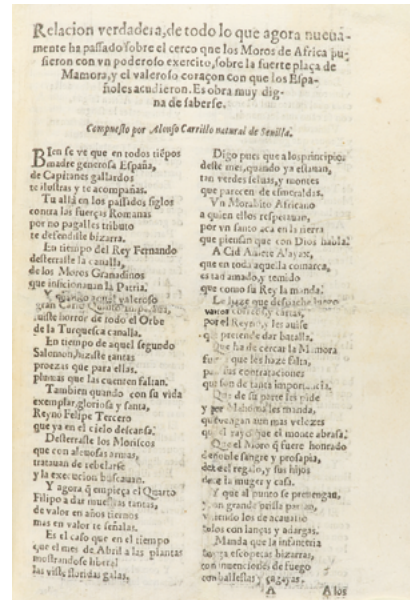 Relacion verdadera, de todo lo que agora nueua-
mente ha passado sobre el cerco que los Moros de Africa pu-
sieron con vn poderoso exercito, sobre la fuerte plaça de
Mamora, y el valeroso coraçon con que los Espa-
ñoles acudieron. Es obra muy dig-
na de saberse.
Compuesto por Alonso Carrillo natural de Seuilla.
BIen se ve que en todos tiẽpos
madre generosa España,
de Capitanes gallardos
te ilustras y te acompañas.
Tu allá en los passados siglos
contra las fuerças Romanas
por no pagalles tributo
te defendiste bizarra.
En tiempo del Rey Fernando
desterraste la canalla,
de los Moros Granadinos
que inficionauan la Patria.
Y quando aquel valeroso
gran Carlo Quinto
fuiste horror de todo el Orbe
de la Turquesca canalla.
En tiempo de aquel segundo
Salomon, hiziste tantas
proezas que para ellas,
plumas que las cuenten faltan.
Tambien quando con su vida
exemplar, gloriosa y santa,
Reynó Felipe Tercero
que ya en el cielo descansa.
Desterraste los Moriscos
que con aleuosas armas,
tratauan de rebelarse
y la execucion buscauan.
Y agora q̃ empieça el Quarto
Filipo a dar muestras tantas,
de valor en años tiernos
mas en valor te señalas.
Es el caso que en el tiempo
que el mes de Abril a las plantas
mostrandose liberal
las viste floridas galas,
Digo pues que a los principios
deste mes, quando ya estauan,
tan verdes seluas, y montes
que parecen de esmeraldas.
Vn Morabito Africano
a quien ellos respetauan,
por vn santo acá en la tierra
que piensan que con Dios habla.
A Cid Amete Alayaxe,
que en toda aquella comarca,
es tad amado, y temido
que como su Rey la manda.
Le dize que despache luego
varios correos y cartas,
por el Reyno, y les auise
que pretende dar batalla.
Que ha de cercar la Mamora
que les haze falta,
para las contrataciones
que son de tanta importancia.
Que de su parte les pide
y por Mahoma les manda,
que vengan aun mas velozes
que el rayo que el monte abrasa.
Que el Moro q̃ fuere honrado
de noble sangre y prosapia,
dexe el regalo, y sus hijos
dexe la muger y casa.
Y que al punto se preuengan,
con grande prissa
viniendo los de acauallo
todos con lanças y adargas.
Manda que la infanteria
traiga escopetas bizarras,
con inuenciones de fuego
con ballestas y çagayas.
A A los